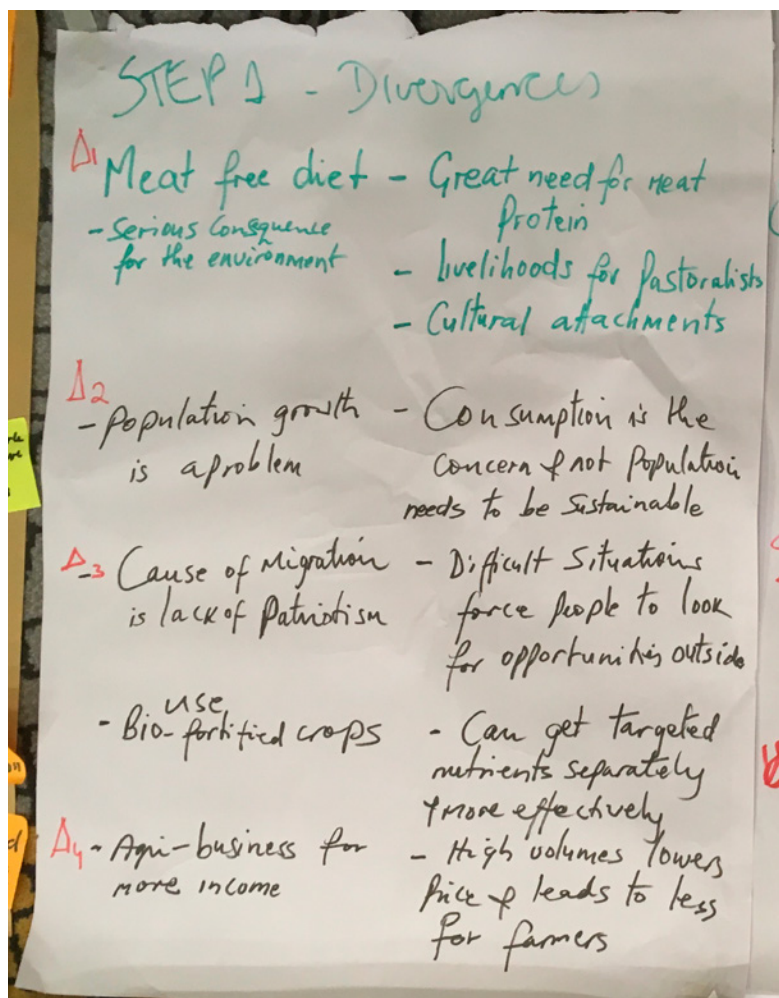 STEP 1 - Divergences
Δ1 Meat free diet - Great need for meat
Protein
- Serious Consquence
for the environment
- livelihoods for Pastoralists
- Cultural attachments
Δ2
- Population growth - Consumption is the
is a problem concern & not Population
needs to be Sustainable
Δ3 Cause of Migration - Difficult Situations
is lack of Patriotism force People to look
for opportunities outside
use
- Bio-fortified crops - Can get targeted
nutrients separately
& more effectively
Δ4 - Agri-business for - High volumes lowers
more income Price & leads to less
for farmers